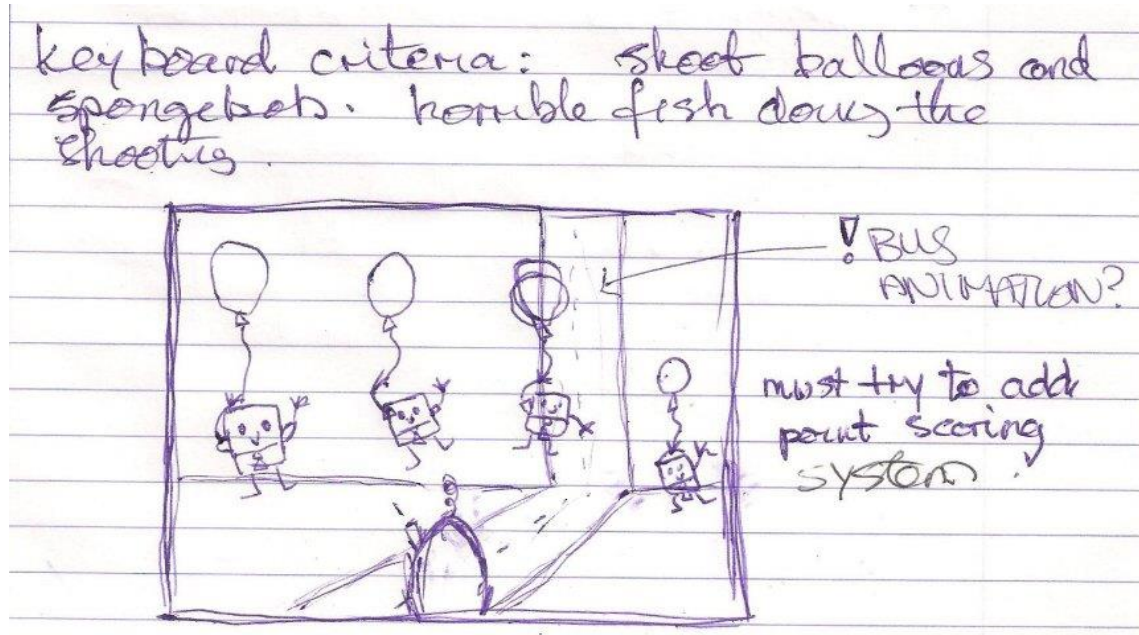 keyboard criteria: shoot balloons and
spongebob. horrible fish doing the
shooting.
! BUS
ANIMATION?
must try to add
point scoring
system.